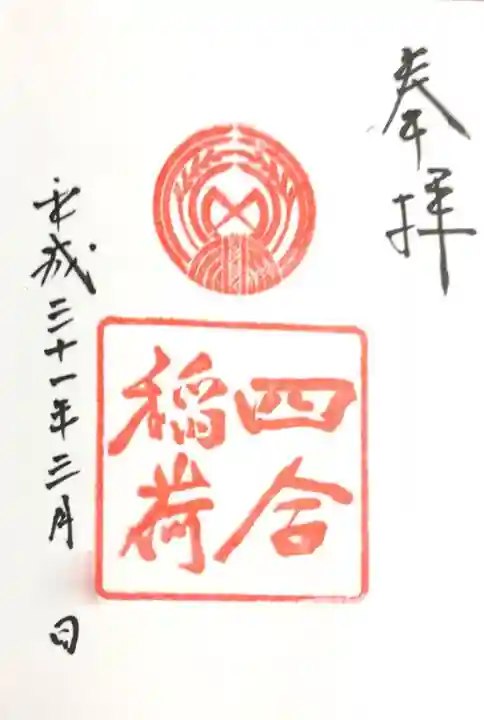 奉拝
四合
稲荷
平成三十一年三月 日